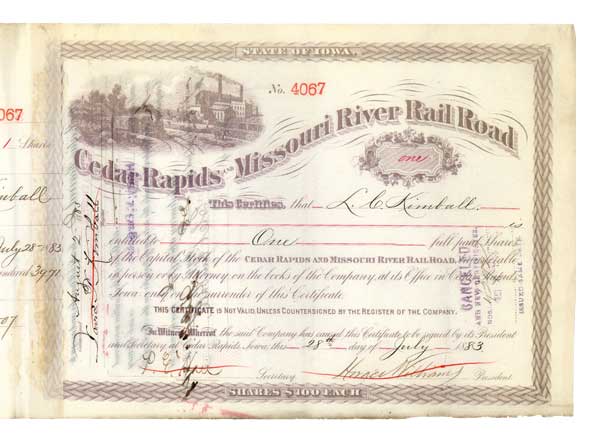 STATE OF IOWA.
No. 4067
Cedar Rapids AND Missouri River Rail Road
one
This Certifies, that L. C. Kimball is
entitled to One full paid Shares
of the Capital Stock of the CEDAR RAPIDS AND MISSOURI RIVER RAIL ROAD, transferable
in person or by Attorney on the books of the Company, at its Office in Cedar Rapids
Iowa only on surrender of this Certificate.
THIS CERTIFICATE IS NOT VALID, UNLESS COUNTERSIGNED BY THE REGISTER OF THE COMPANY.
In Witness Whereof the said Company has caused this Certificate to be signed by its President
and Secretary at Cedar Rapids, Iowa, this 28th day of July 1883
Secretary President
SHARES $100 EACH
CANCELLED
AND NEW
NOS.
ISSUED SAME DATE
August 2
Kimball
067
1 Shares
Kimball
July 28 1883
3971
07